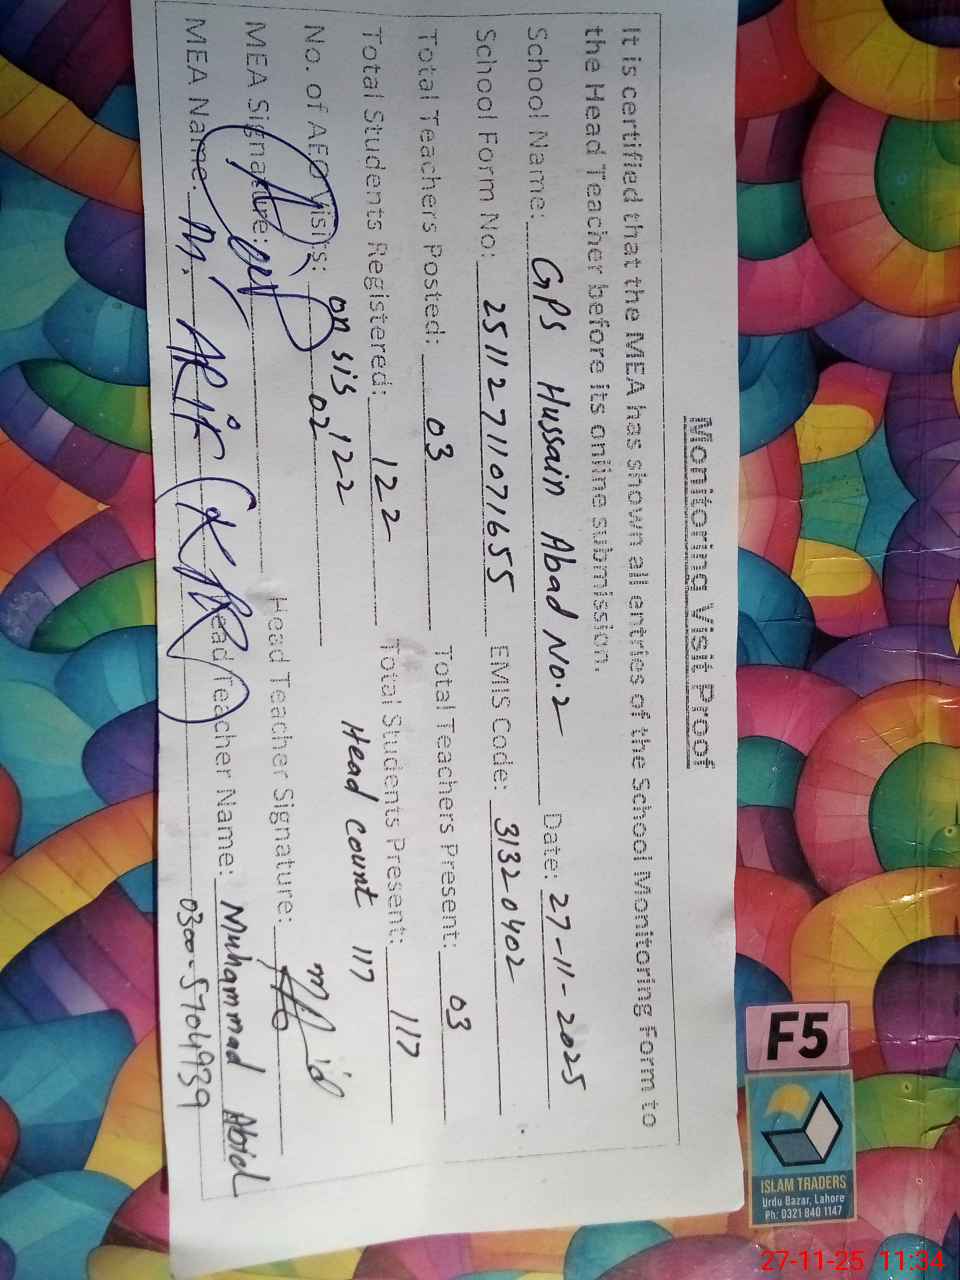 Monitoring Visit Proof
It is certified that the MEA has shown all entries of the School Monitoring Form to
the Head Teacher before its online submission.
School Name: GPS Hussain Abad No.2 Date: 27-11-2025
School Form No: 25112711071655 EMIS Code: 31320402
Total Teachers Posted: 03 Total Teachers Present: 03
Total Students Registered: 122 Total Students Present: 117
on sis 122 Head count 117
No. of AEO Visits: 02
MEA Signature: Head Teacher Signature:
MEA Name: M. Head Teacher Name: Muhammad Abid
0300-5704939
F5
ISLAM TRADERS
Urdu Bazar, Lahore
Ph: 0321 840 1147
27-11-25 11:34